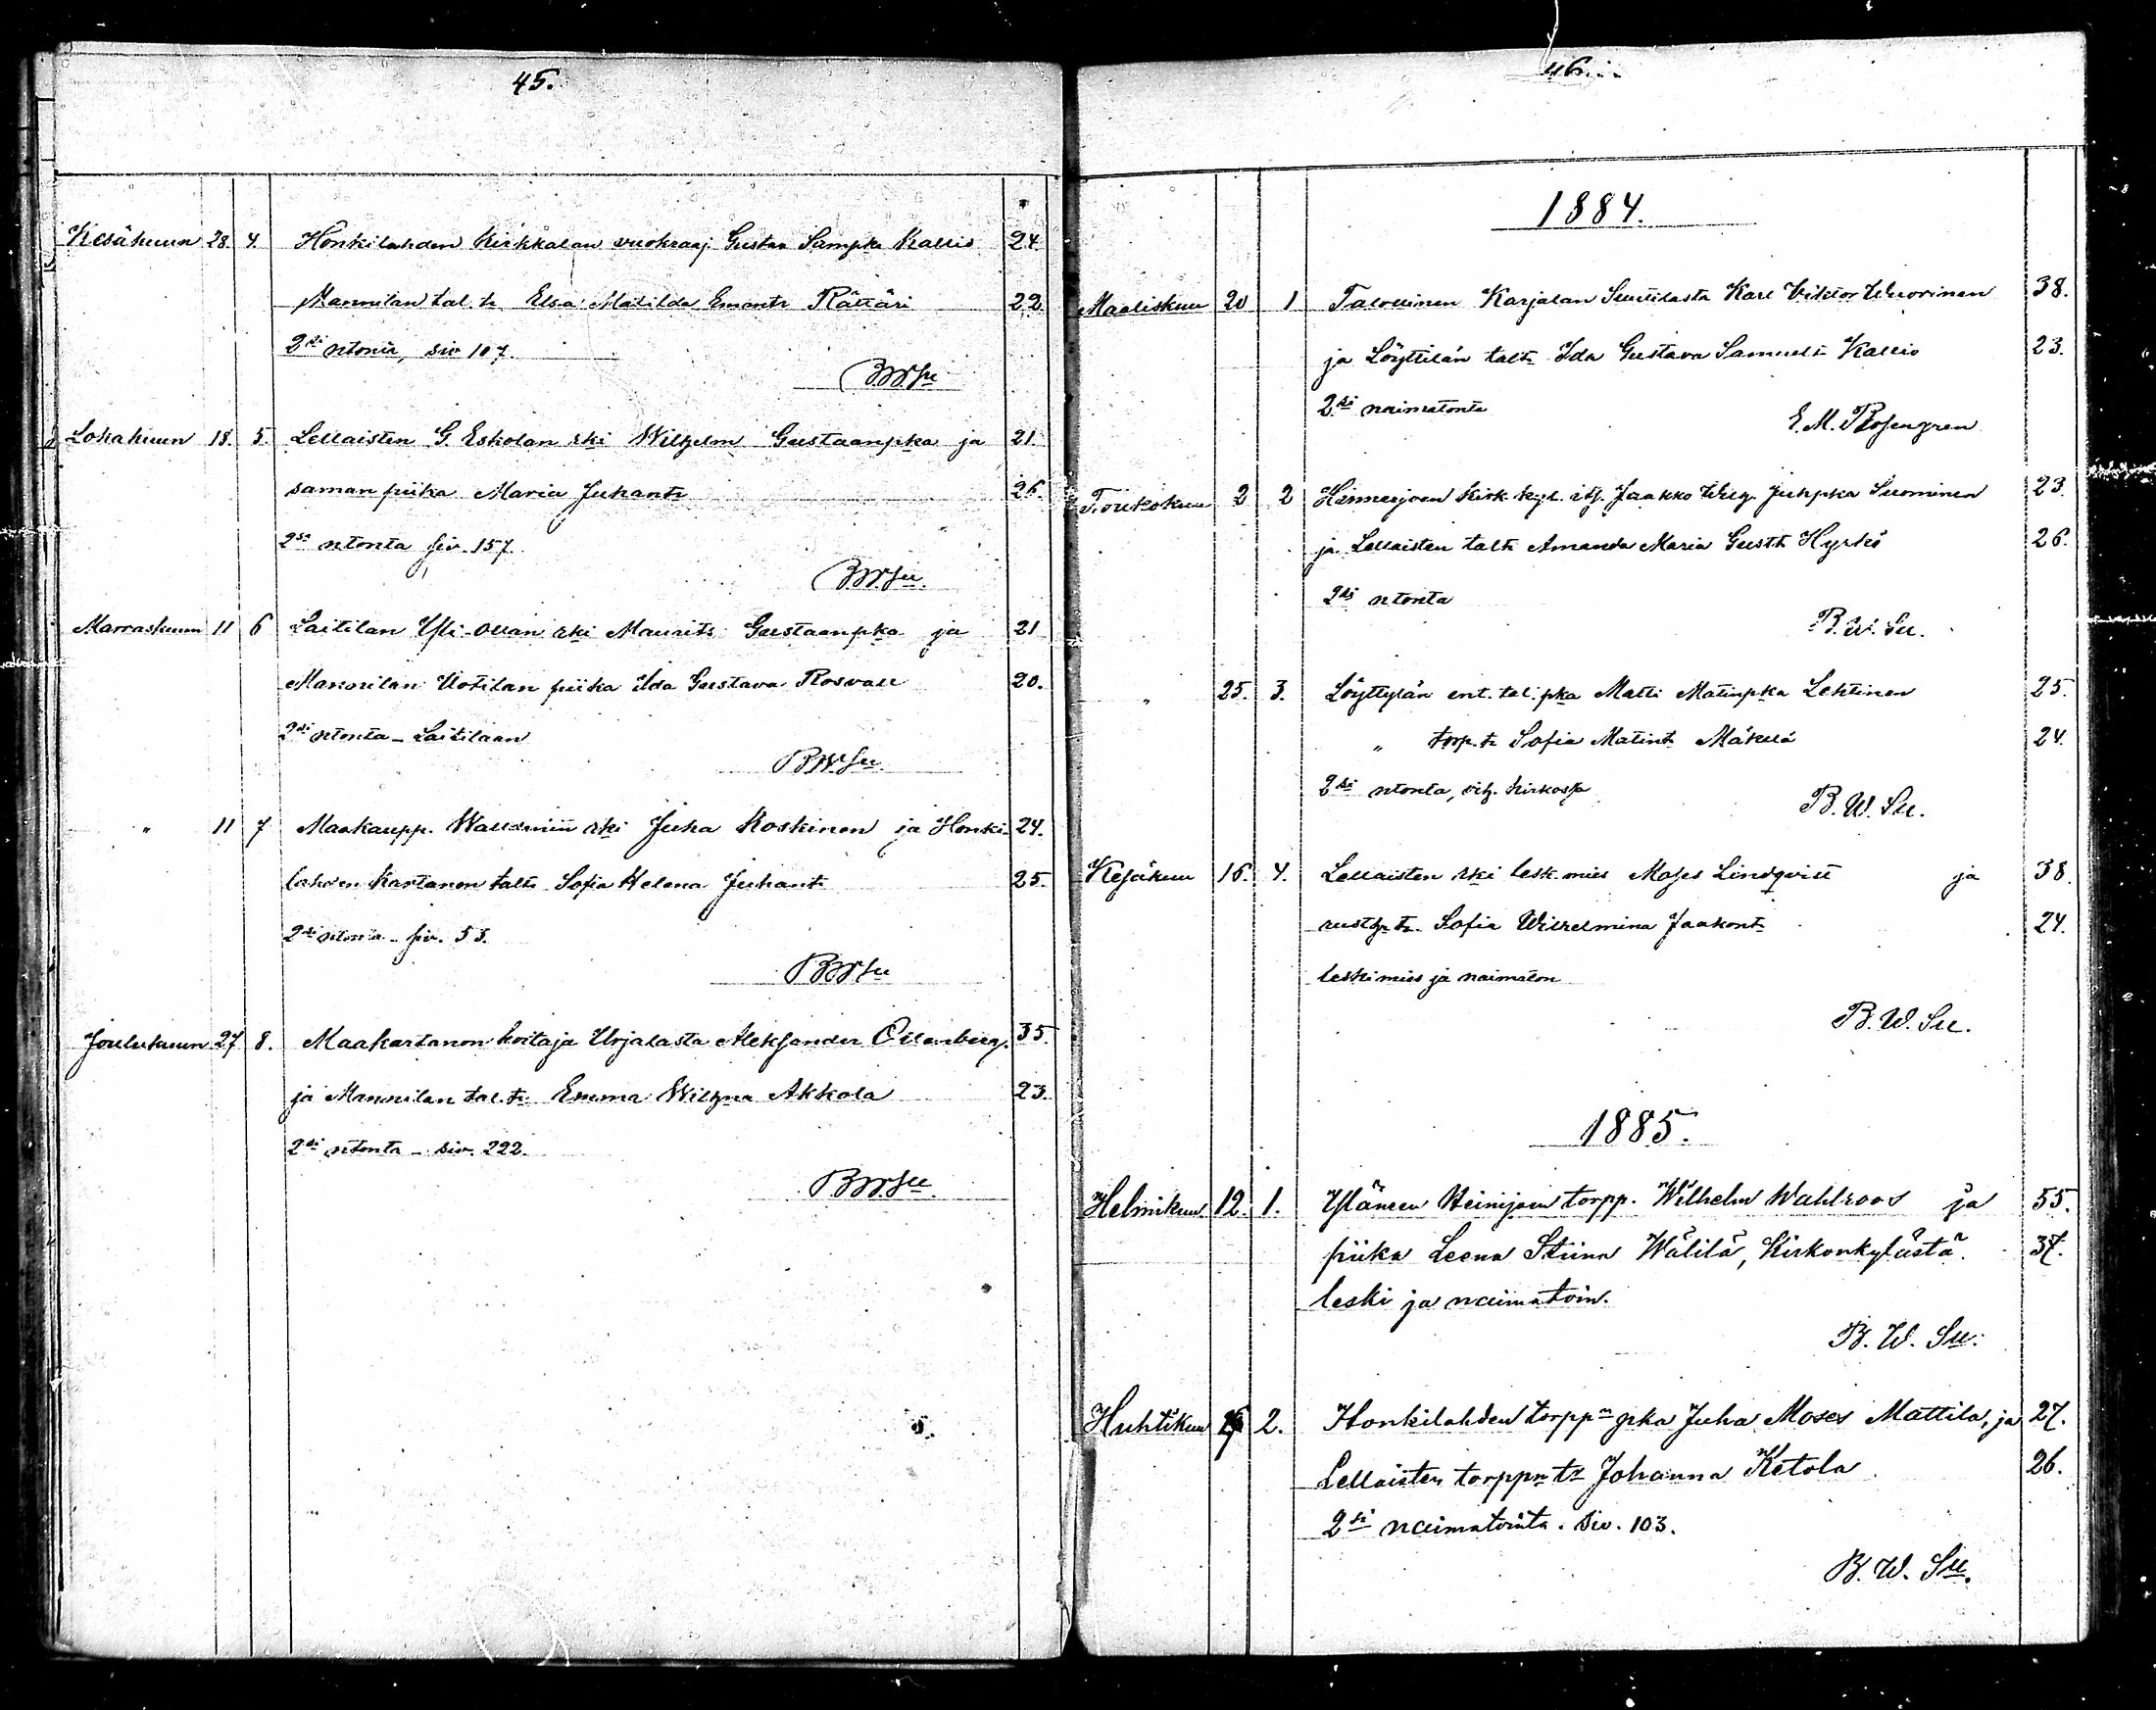 45.
Kesäkuun 28. 4. Honkilahden Kirkkalan vuokraaj Gustaa Sampka Kallio 24.
Mannilan tal. tr Elsa Matilda Emantr Rättäri 22.
2si ntonta, siv 107.
BWSu
Lokakuun 18. 5. Lellaisten G. Eskolan rki Wilhelm Gustaanpka ja 21
saman piika Maria Juhantr 26.
2si ntonta siv. 157.
BWSu.
Marraskuun 11 6 Laitilan Yli-Ollan rki Maurits Gustaanpka ja 21
Mannilan Uotilan piika Ida Gustava Rosvall 20.
2si ntonta - Laitilaan
BWSu.
" 11 7 Maakaupp. Walleniin rki Juha Koskinen ja Honki- 24.
lahden Kartanon taltr Sofia Helena Juhantr 25.
2si ntonta - siv. 53.
BWSu
Joulukuun 27 8. Maakartanon hoitaja Urjalasta Aleksander Ollenberg. 35.
ja Mannilan tal. tr Emma Wilhna Akkola 23.
2si ntonta - siv. 222.
BWSu.
46.
1884.
Maaliskuu 20 1 Talollinen Karjalan Suutilasta Karl Viktor Wuorinen 38.
ja Löyttilän taltr Ida Gustava Samuelstr Kallio 23.
2si naimatonta
E. M. Rosengren
Toukokuu 2 2 Hinnerjoen kirk. kyl. itj. Jaakko Wilh. Juhpka Suominen 23.
ja Lellaisten taltr Amanda Maria Gusttr Hyrkö 26.
2si ntonta
B. W. Su.
" 25. 3. Löyttylän ent. tal. pka Matti Matinpka Lehtinen 25.
" torp. tr Sofia Matintr Mäkelä 24.
2si ntonta, vih. kirkossa
B. W. Su.
Kesäkuu 16. 4. Lellaisten rki lesk. mies Moses Lindqvist ja 38.
rusth. tr. Sofia Wilhelmina Jaakontr 24.
leskimies ja naimaton
B. W. Su.
1885.
Helmikuu. 12. 1. Yläneen Heinijoen torpp. Wilhelm Wahlroos ja 55.
piika Leena Stiina Wälilä, Kirkonkylästä. 37.
leski ja naimatoin.
B. W. Su.
Huhtikuu 2. Honkilahden torppn pka Juha Moses Mattila, ja 27.
Lellaisten torppn tr Johanna Ketola 26.
2si naimatointa. Siv. 103.
B. W. Su.